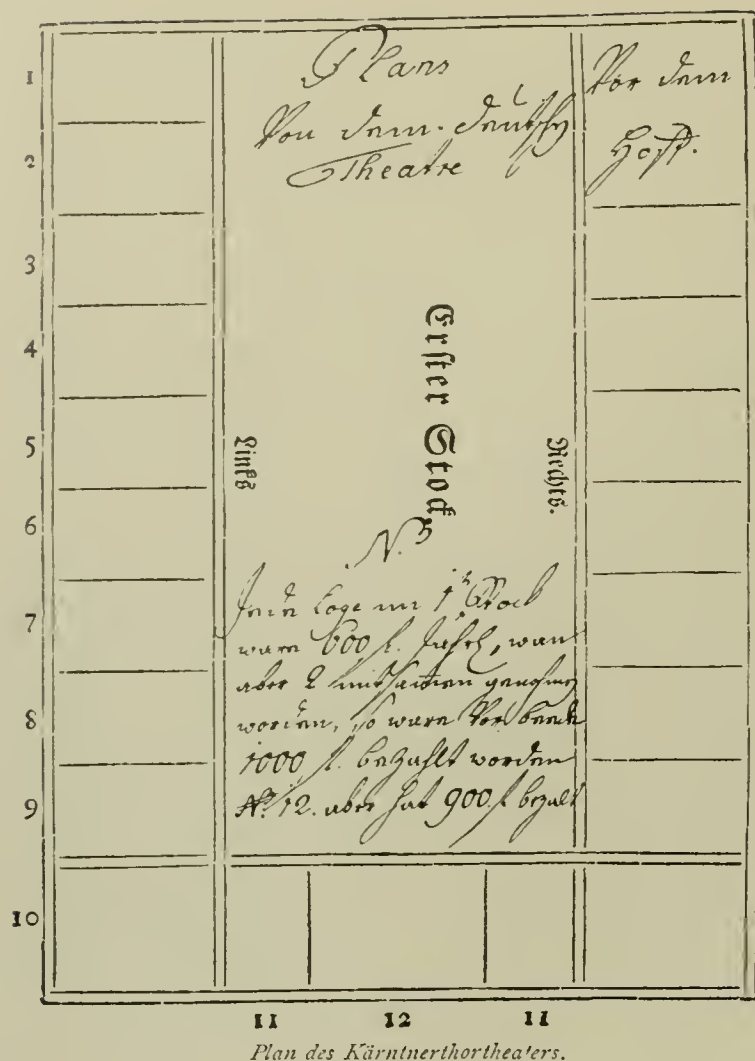 Plans
Von dem deutschen
Theatre
Vor dem
Hoff.
1
2
3
4
5
6
7
8
9
10
Erster Stock
Links
Rechts.
N.
Jede Loge im 1t Stock
ware 600 f. jährl, wan
aber 2 mitsamen genohmen
worden, so ware vor beede
1000 f. bezahlt worden
No 12. aber hat 900 f bezalt
11 12 11
Plan des Kärntnerthortheaters.